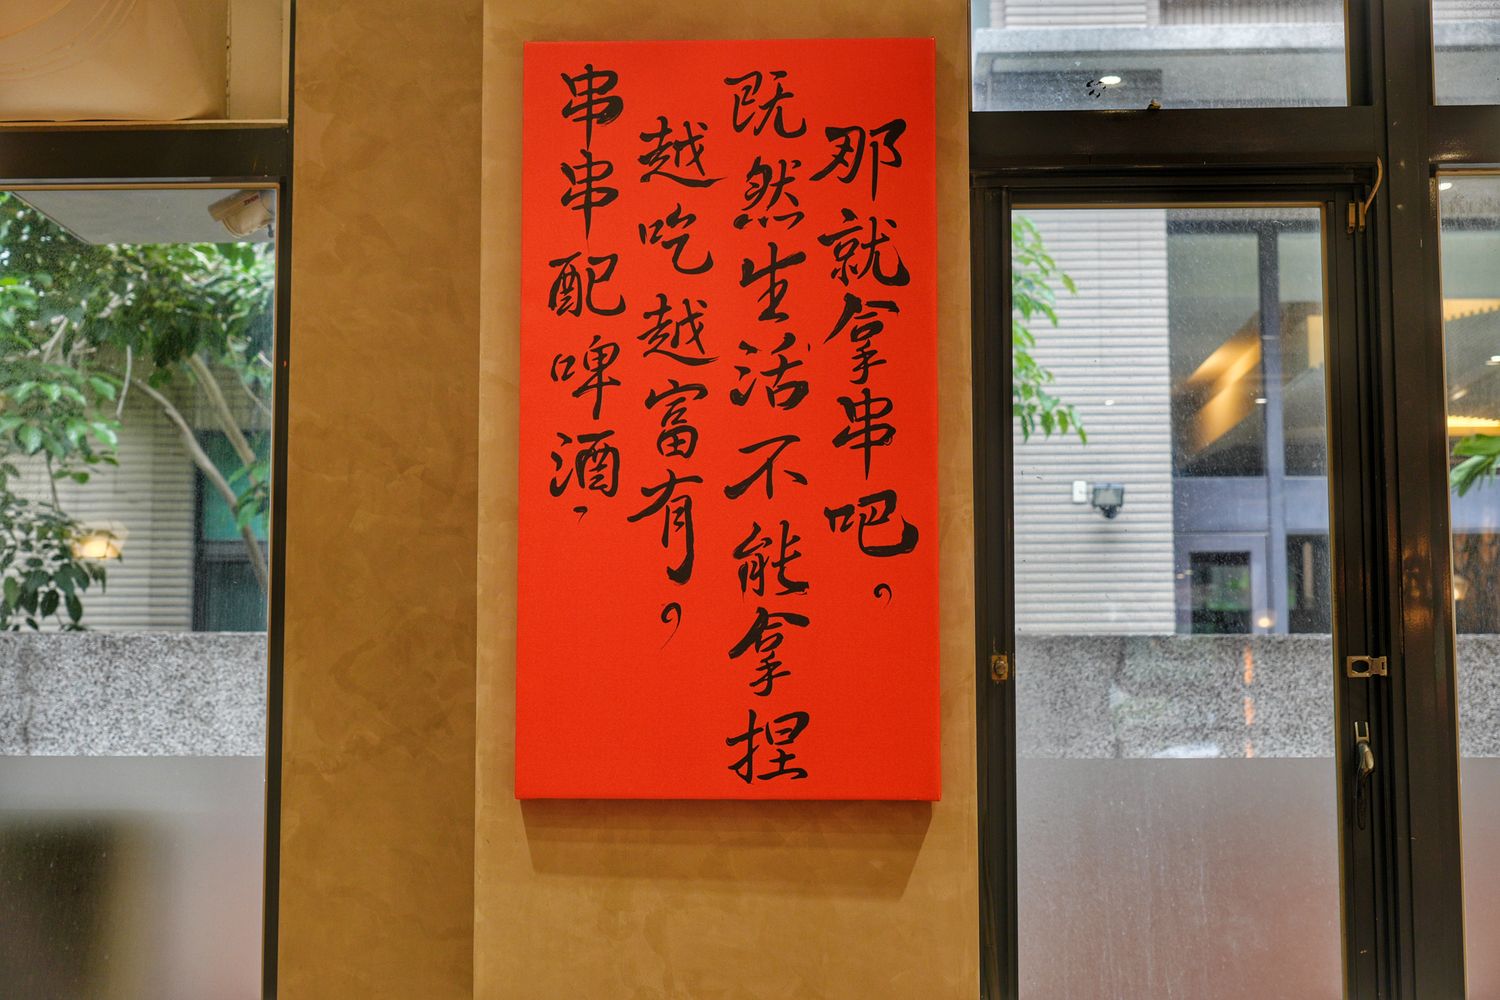 串串配啤酒，
越吃越富有。
既然生活不能拿捏
那就拿串吧。